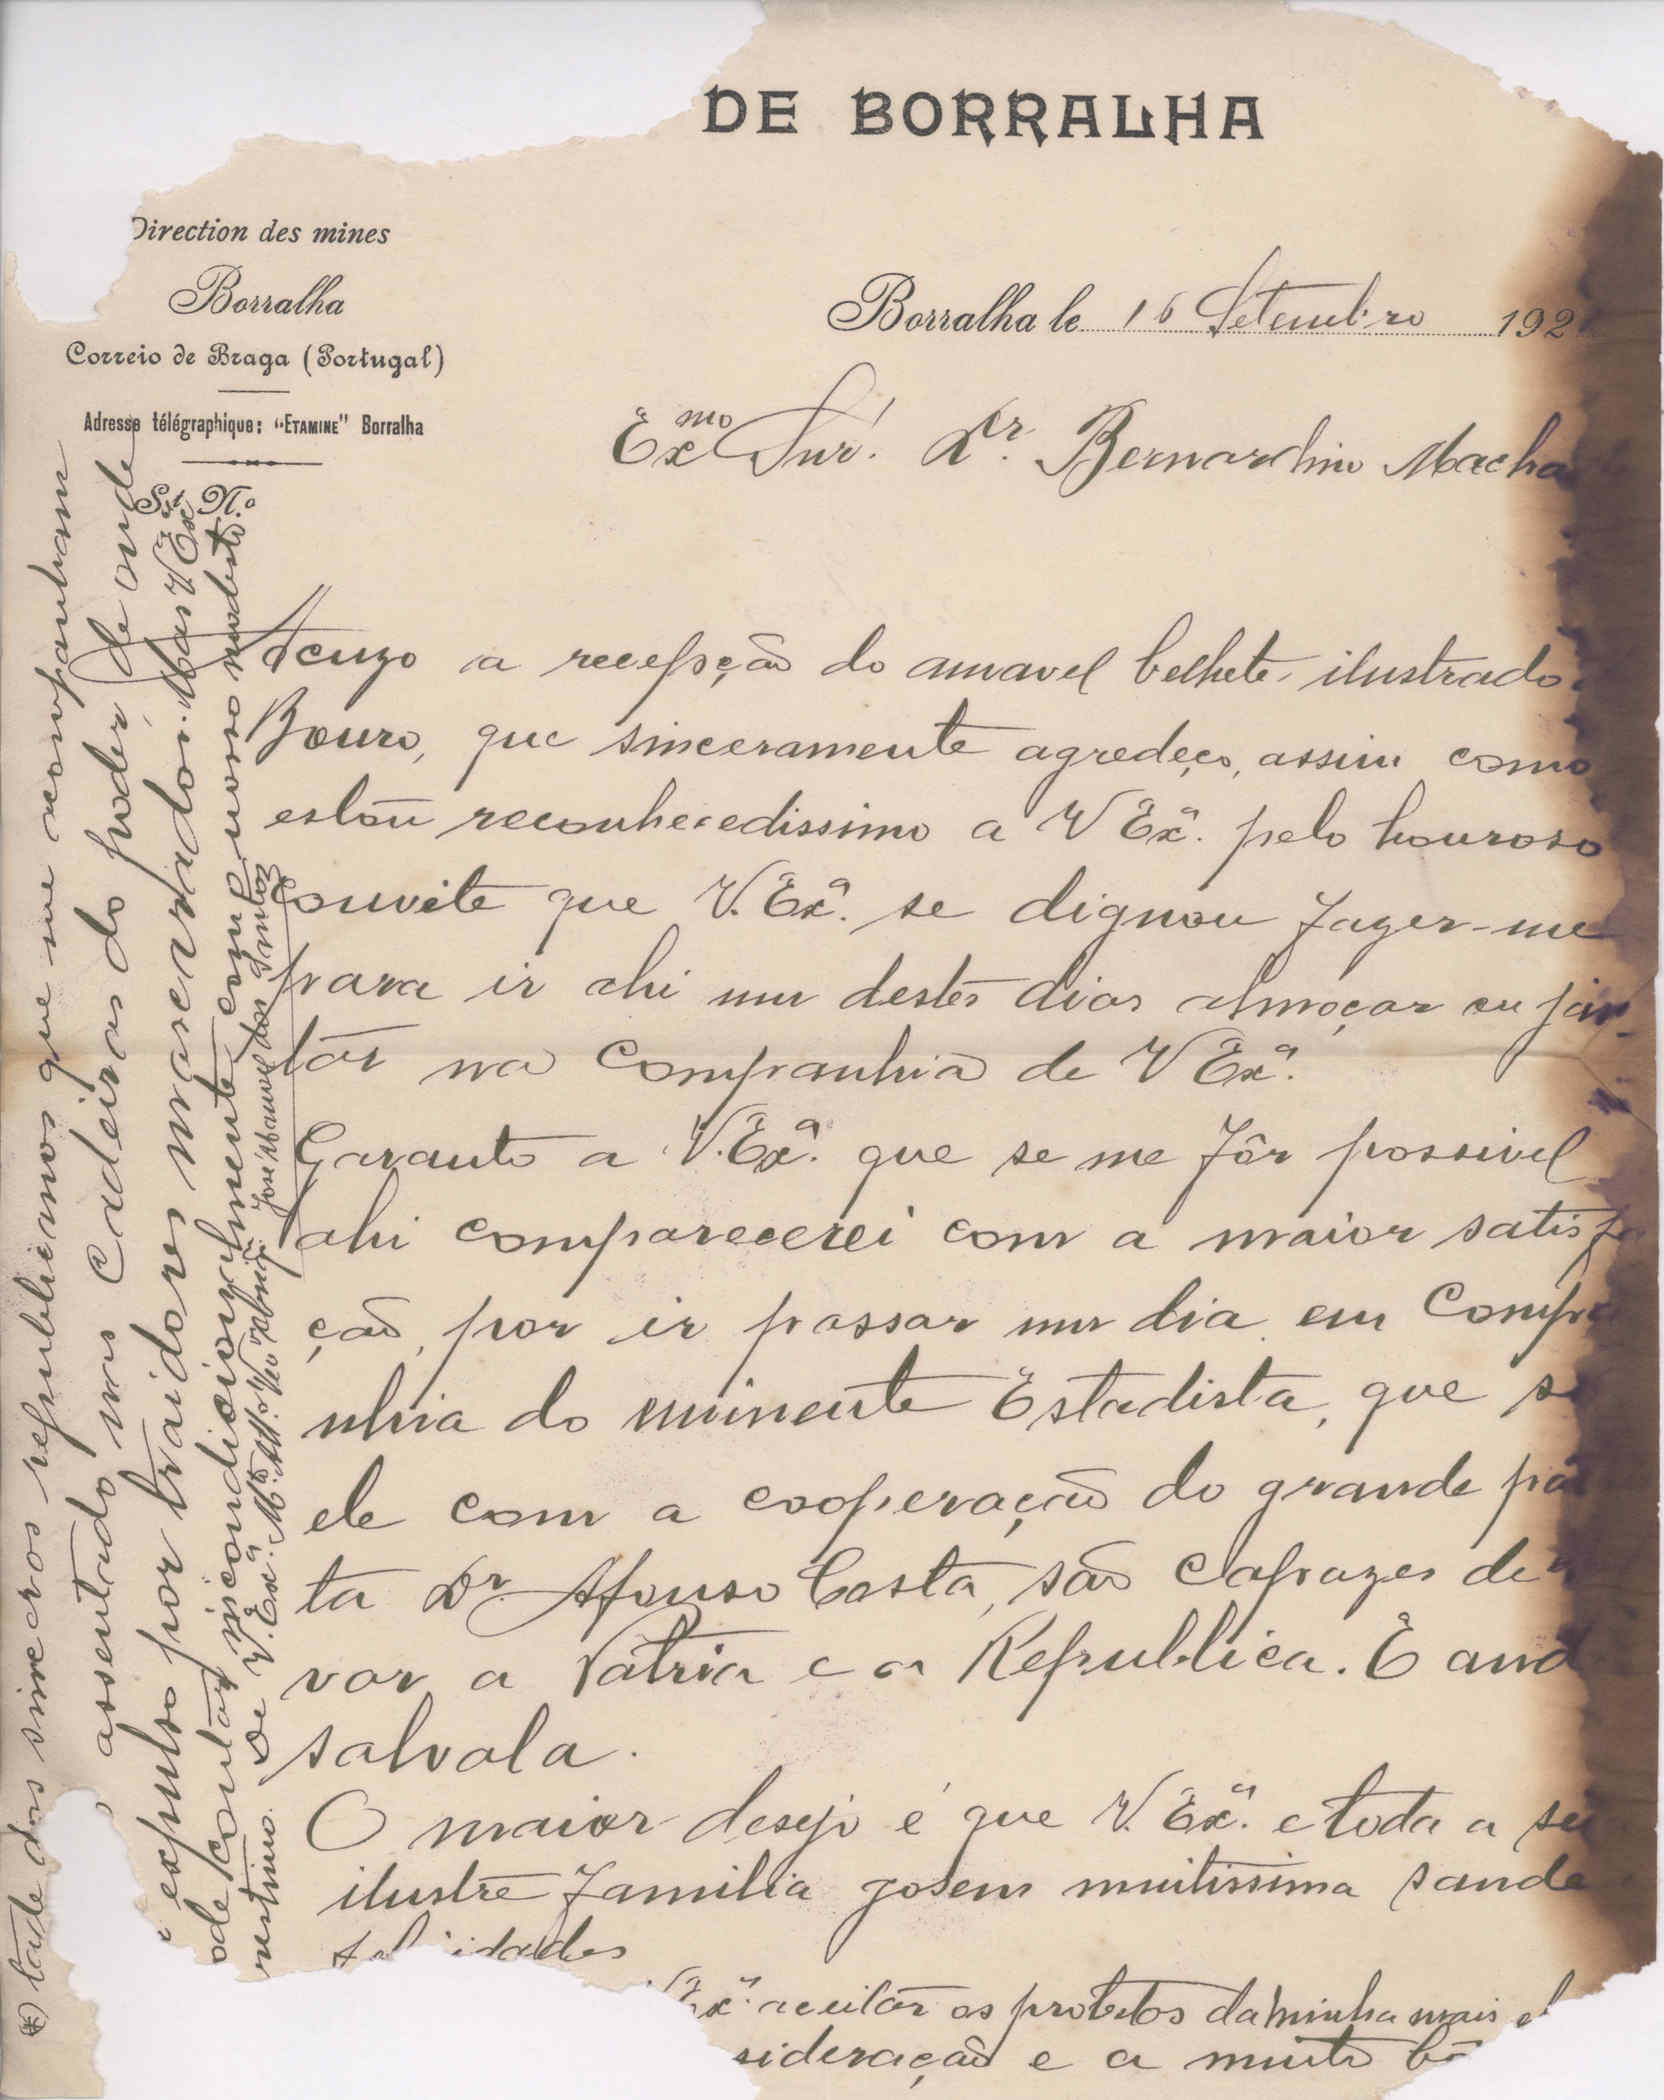 DE BORRALHA
Direction des mines
Borralha
Correio de Braga (Portugal)
Adresse télégraphique: "ETAMINE" Borralha
Nº
Borralha le 16 Setembro 192
Exmo Snr! Dr. Bernardino Macha
Acuzo a recepção do amavel belhete ilustrado
Bouro, que sinceramente agredeço, assim como
estou reconhecedissimo a V Exª. pelo honroso
convite que V. Exª. se dignou fazer-me
para ir ahi um destes dias almoçar ou jan-
tar na companhia de V Exª.
Garanto a V. Exª. que se me fôr possivel
ahi comparecerei com a maior satisfa
ção, por ir passar um dia em Compa
nhia do iminente Estadista, que s
ele com a cooperação do grande
ta Dr. Afonso Costa, são Capazes de
var a Patria e a Republica. E
salvala.
O maior desejo é que V. Exª. e toda a su
ilustre familia gosem muitissima saude
idades
Exª. aceitar os protestos da minha mais
sideração e a muito
*) tade dos sinceros republicanos que me acompanham
assentado nas cadeiras do poder, de onde
expulso por traidores mascarados. Mas V. Exª
ode contar incondicionalmente com o nosso modesto
restimo. De V. Exª. Mto. Attº. Vor. Obrigº. José Manuel dos Santos